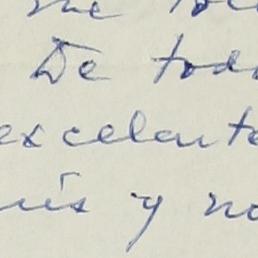 me
De tod
excelente
mis y no